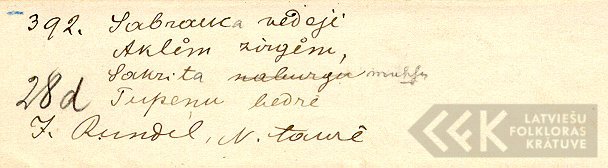 392. Sabrauka vēdeji
Aklēm zirgēm,
Sakrita naburgu
28d Tupeņu bedrē
J. Rundēl, N. taurē
LATVIEŠU
FOLKLORAS
KRĀTUVE